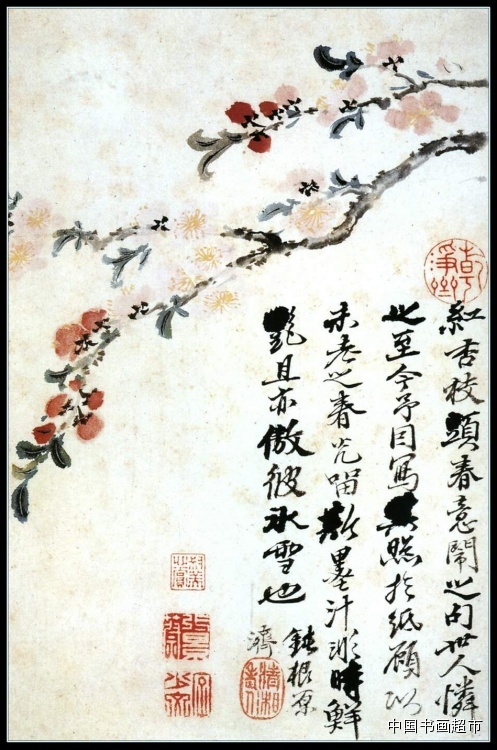 紅杏枝頭春意鬧之句世人憐
之至今予因寫照於紙顧以
未老之春光留斯墨汁時鮮
艷且亦傲彼冰雪也
鈍根原
濟
清湘老人
中国书画超市